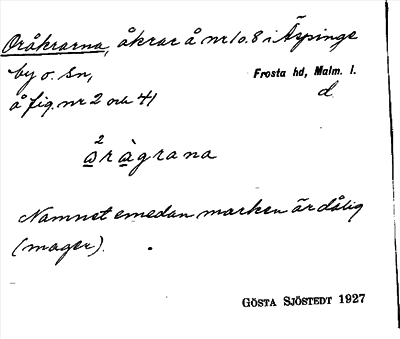 Oråkrarna, åkrar å nr 1 o. 8 i Äspinge
by o. sn,
Frosta hd, Malm. l.
å fig. nr 2 och 41
d.
2
a̲rà̲grana
Namnet emedan marken är dålig
(mager).
GÖSTA SJÖSTEDT 1927